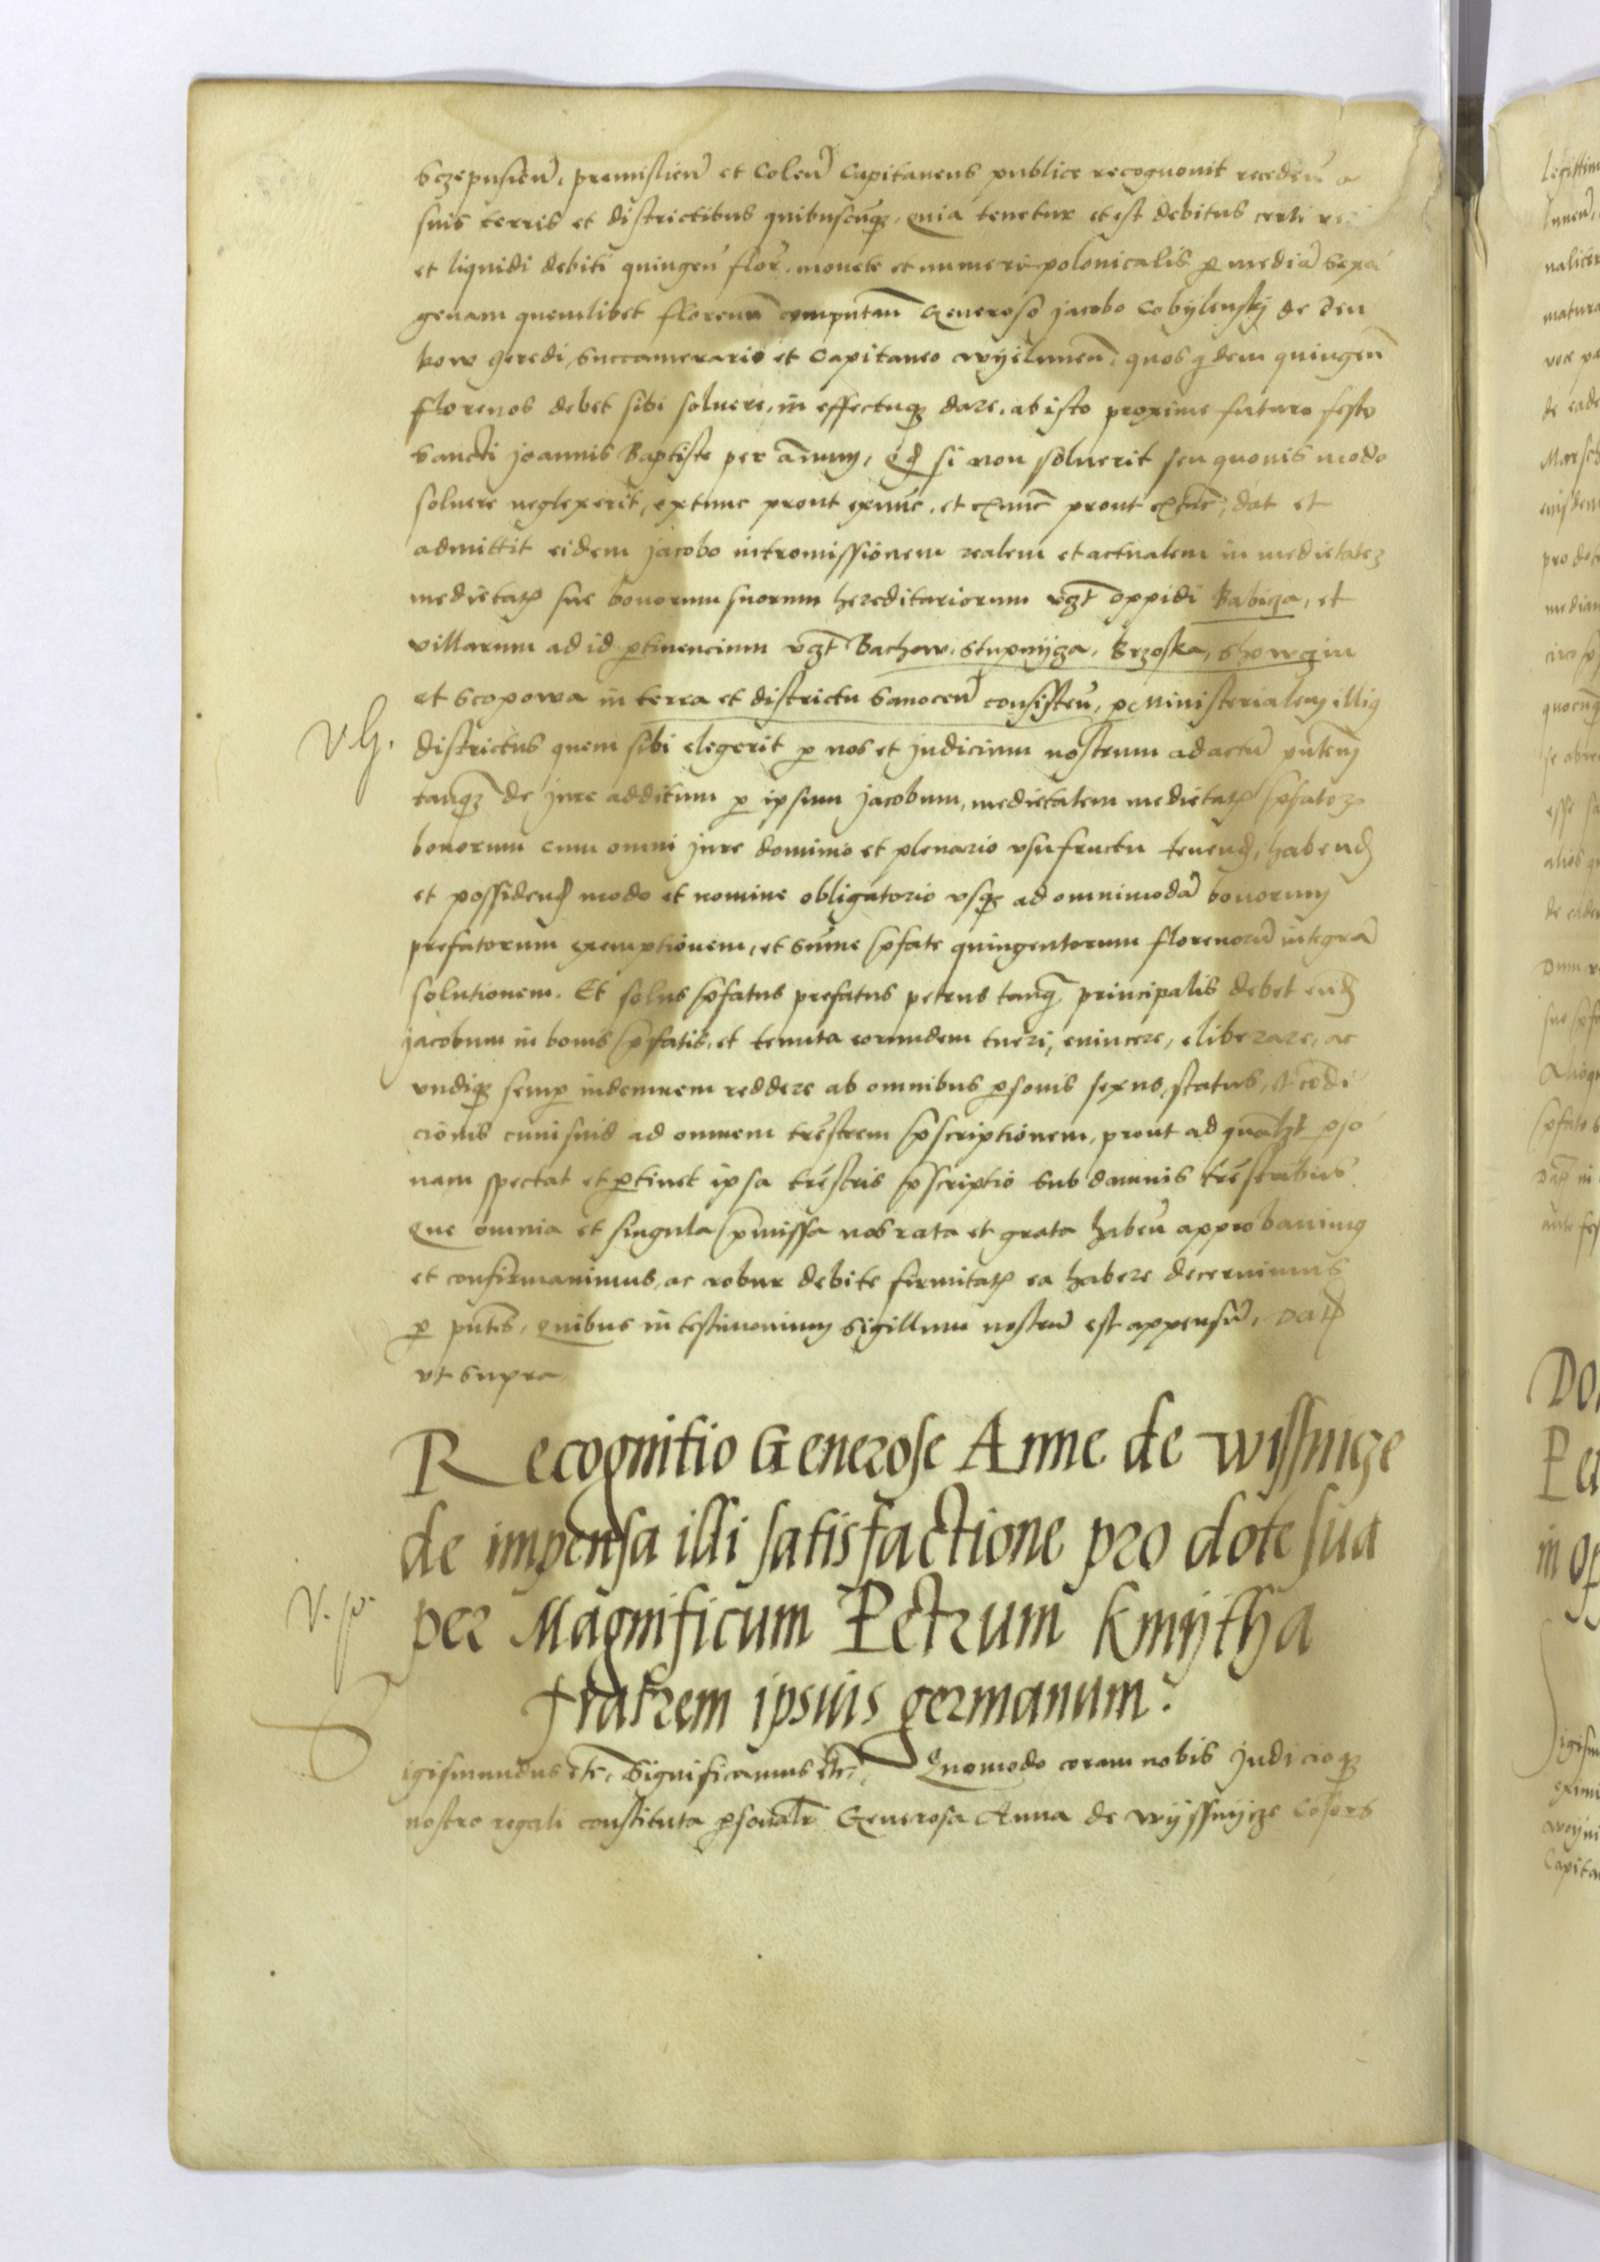 Sczepusien̄, premislien̄ et Colen̄ Capitaneus publice recognovit receden̄ a
suis terris et districtibus quibuscūqȝ, quia tenetur et est debitus certi
et liquidi debiti quingen̄ flor̄. monete et numeri polonicalis p mediā Sexa
genam quemlibet florenū computan̄ Generoso Jacobo Cobylenskj de Den
kow heredi, Succamerario et Capitaneo wyelunen̄, quos qdem quingen̄
florenos debet sibi solvere, in effectuqȝ dare, ab isto proxime futuro festo
Sancti Joannis Baptiste per annum, qd si non solverit seu quovis modo
solvere neglexerit, extunc prout exnūc, et exnūc prout extūc, dat et
admittit eidem Jacobo intromissionem realem et actualem in medietatē
medietatꝭ sue bonorum suorum hereditariorum vꝫt oppidi Babicza, et
villarum ad id ptinencium vꝫt Bachow, Stupnycza, Brzoska, Showczin
et Scopowa in terra et districtu Sanocen̄ consisten̄, p Ministerialem illiꝯ
districtus quem sibi elegerit p nos et Judicium nostrum ad actū pn̄tem
tanqȝ de Jure additum p ipsum Jacobum, medietatem medietatꝭ pfatoꝝ
bonorum cum omni Jure dominio et plenario usufructu tenend, habend
et possidend modo et nomine obligatorio usqȝ ad omnimodā bonorum
prefatorum exemptionem, et Sūme pfate quingentorum florenorū integrā
solutionem. Et solus pfatus prefatus petrus tanqȝ principalis debet eund
Jacobum in bonis pfatis, et tenuta eorundem tueri, evincere, eliberare, ac
undiqȝ semp indemnem reddere ab omnibus psonis sexus, status, et cōdi
cionis cuiusvis ad omnem trēstrem pscriptionem, prout ad quālꝫt psō
nam spectat et ptinet ipsa trēstris pscriptio sub damnis trēstribus
Que omnia et singula pmissa nos rata et grata haben̄ approbavimꝯ
et confirmavimus, ac robur debite firmitatꝭ ea habere decernimus
p pn̄tes, quibus in testimonium Sigillum nostrū est appensū, Datꝭ
ut supra
Recognitio Generose Anne de wissnicze
de impensa illi satisfactione pro dote sua
per Magnificum Petrum Kmijtha
fratrem ipsius germanum.
Sigismundus etc̄, Significamus etc̄, Quomodo coram nobis Judicioqȝ
nostro regali constituta psonalr̄ Generosa Anna de wyssnycze Cōsors